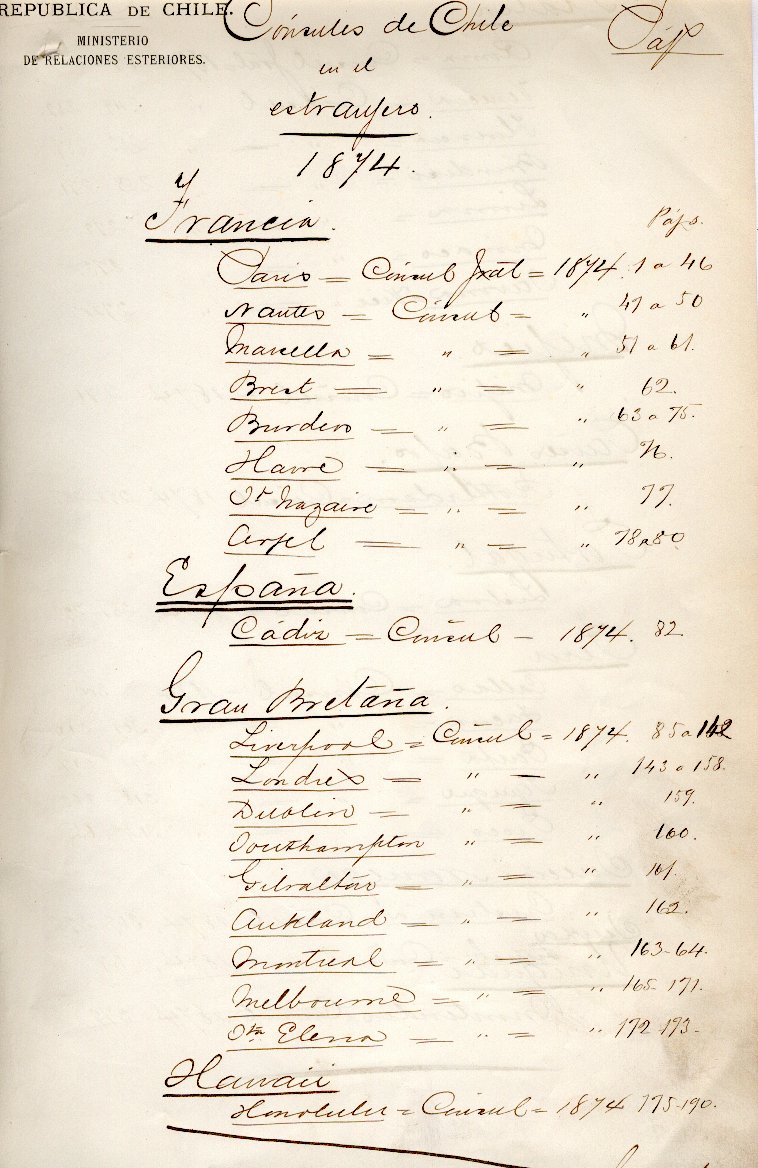 REPUBLICA DE CHILE.
MINISTERIO
DE RELACIONES ESTERIORES.
Cónsules de Chile
en el
estranjero.
1874.
Páj
Francia.
Pájs.
Paris = Cónsul Jral = 1874. 1 a 46
Nantes = Cónsul = " 47 a 50
Marsella = " = " 51 a 61.
Brest = " = " 62.
Burdeos = " = " 63 a 75.
Havre = " = " 76.
St Nazaire = " = " 77.
Arjel = " = " 78 a 80
España.
Cádiz = Cónsul - 1874. 82
Gran Bretaña.
Liverpool = Cónsul = 1874. 85 a 142
Londres = " = " 143 a 158.
Dublin = " = " 159.
Southampton " = " 160.
Gibraltar = " = " 161.
Aukland = " = " 162.
Montreal = " = " 163-64.
Melbourne = " = " 165-171.
Sta Elena = " = " 172-173-
Hawaii
Honolulu = Cónsul = 1874 175-190.